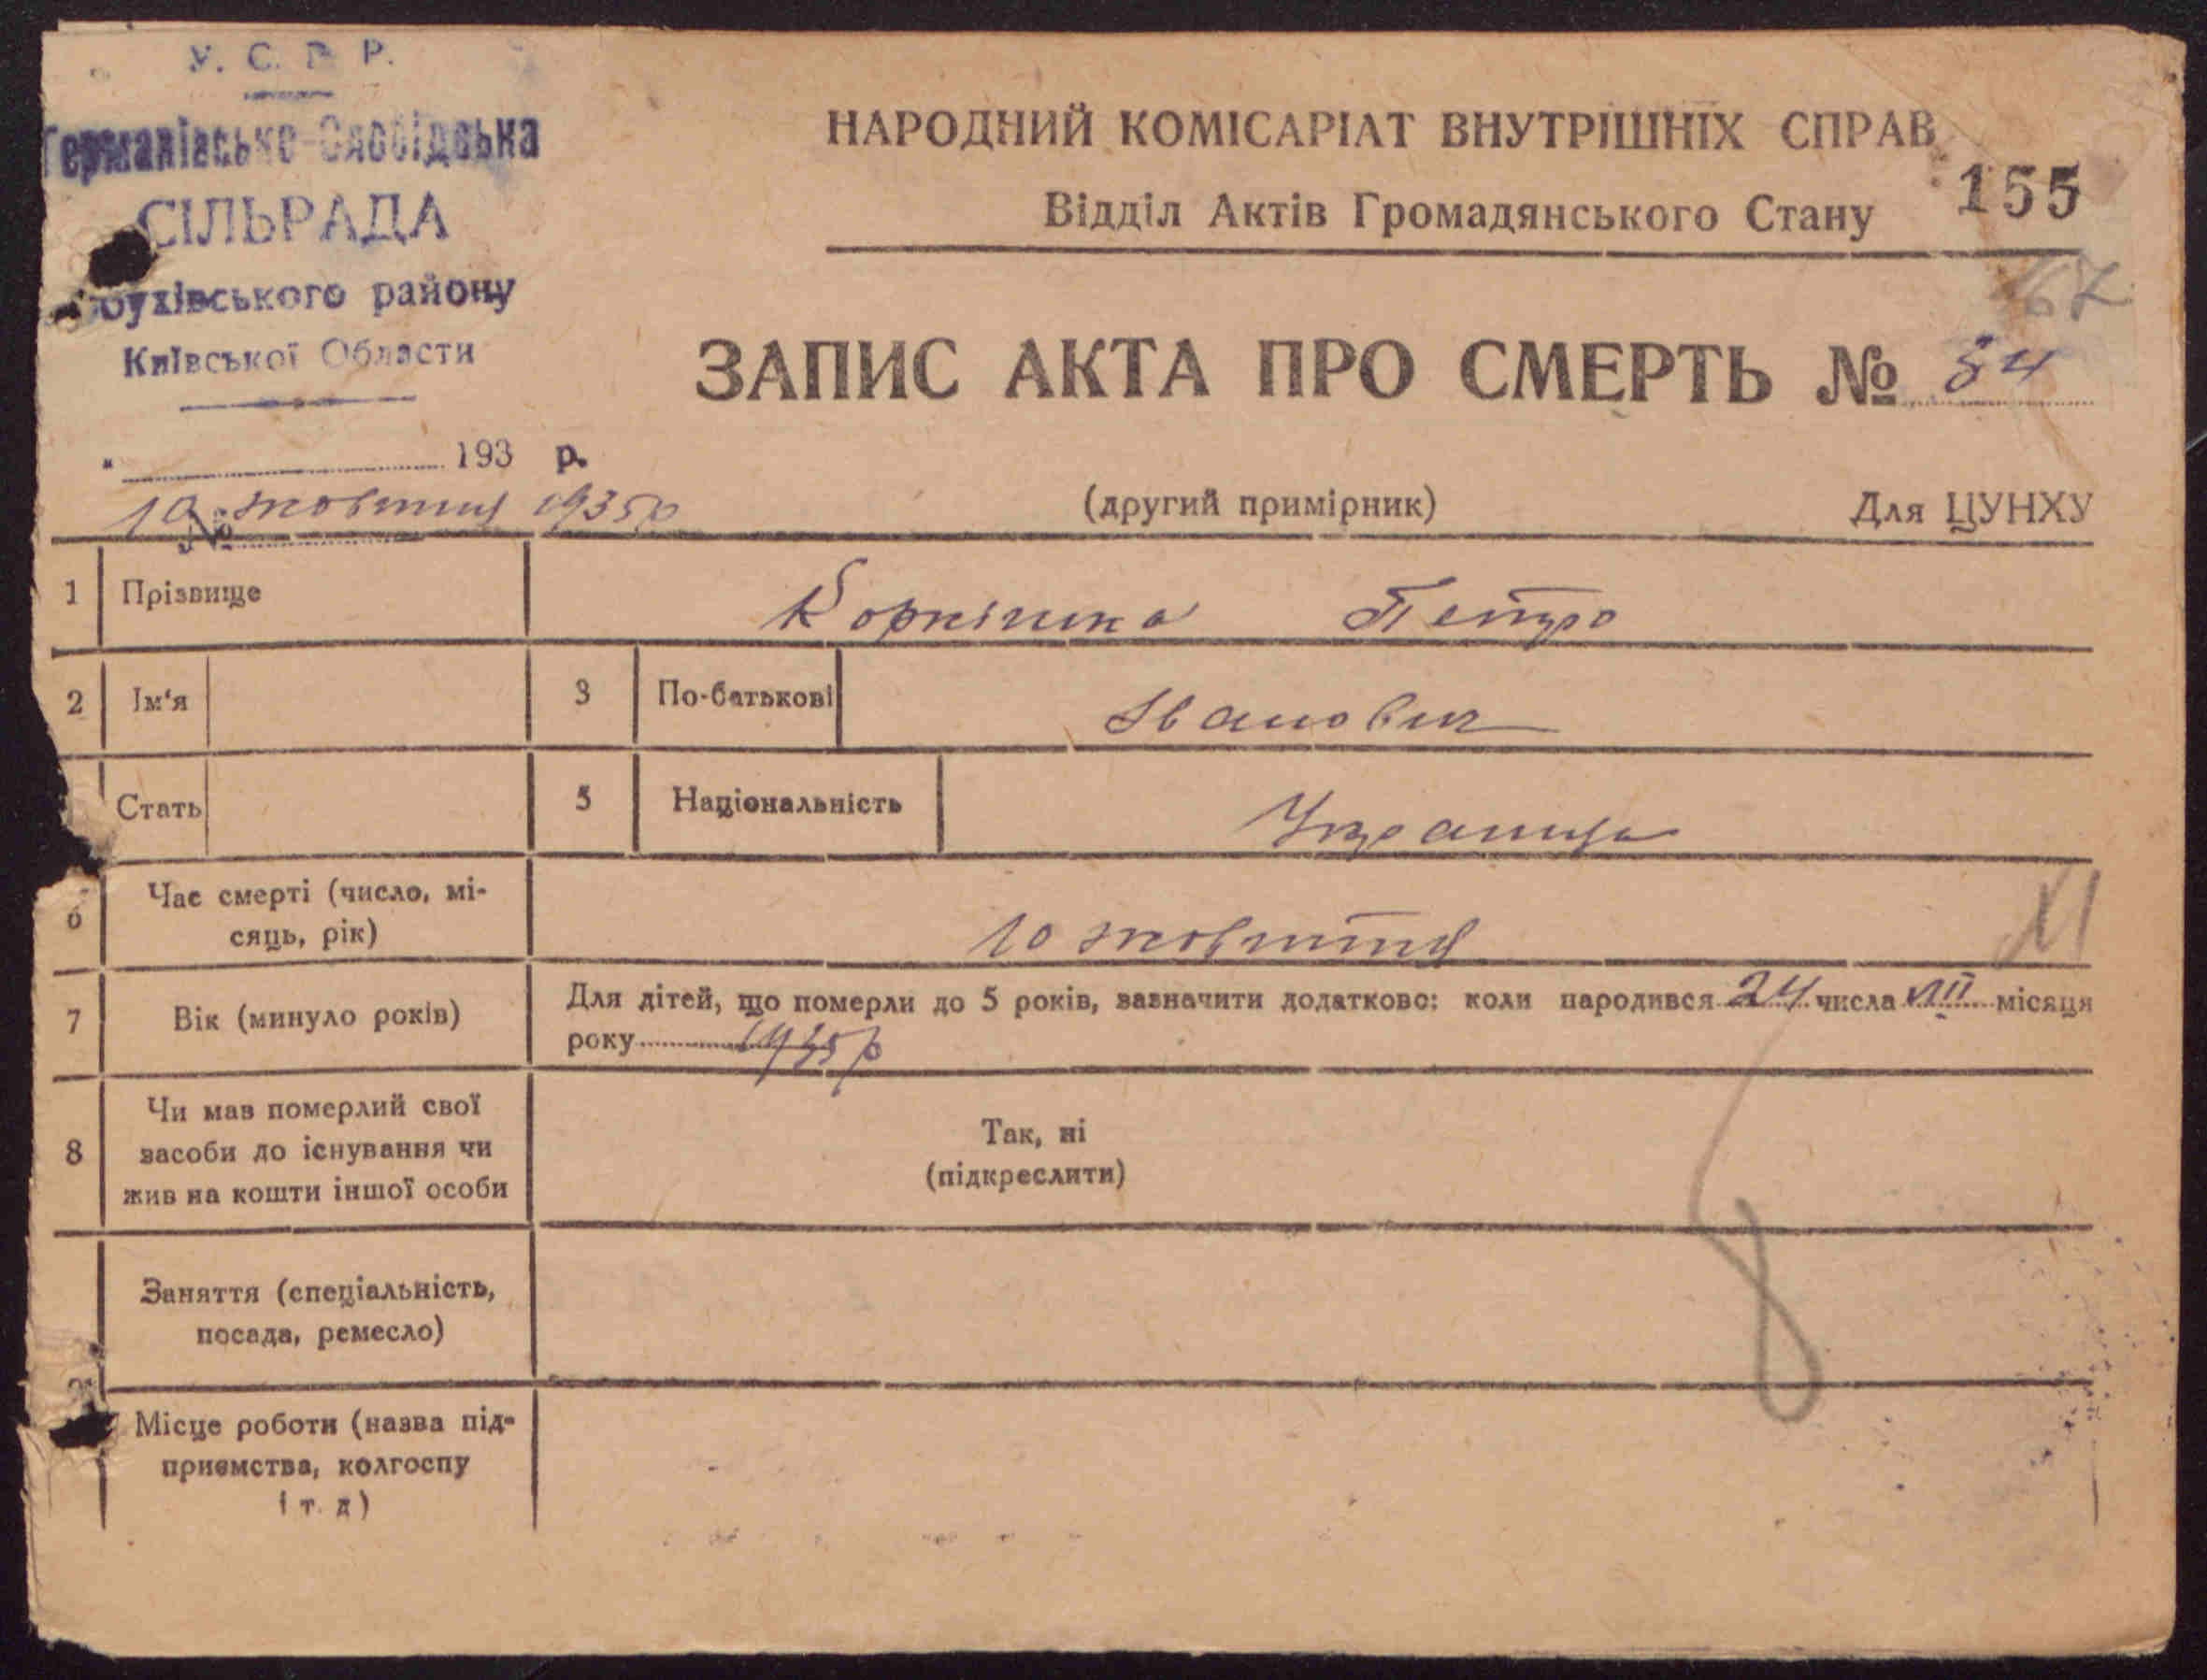 У. С. Р. Р.
Германівсько-Слобідська
СІЛЬРАДА
бухівського району
Київської Области
193 р.
10 жовтня 1935р
№
НАРОДНИЙ КОМІСАРІАТ ВНУТРІШНІХ СПРАВ
Відділ Актів Громадянського Стану
155
67
ЗАПИС АКТА ПРО СМЕРТЬ № 34
(другий примірник) Для ЦУНХУ
1 Прізвище Петро
2 Ім'я 3 По-батькові Іванович
Стать 5 Національність
6 Час смерті (число, мі-
сяць, рік) 10 жовтня
7 Вік (минуло років) Для дітей, що померли до 5 років, зазначити додатково: коли народився 24 числа VIII місяця
року 1935р
8 Чи мав померлий свої
засоби до існування чи
жив на кошти іншої особи
Так, ні
(підкреслити)
Заняття (спеціальність,
посада, ремесло)
Місце роботи (назва під-
приємства, колгоспу
і т. д)